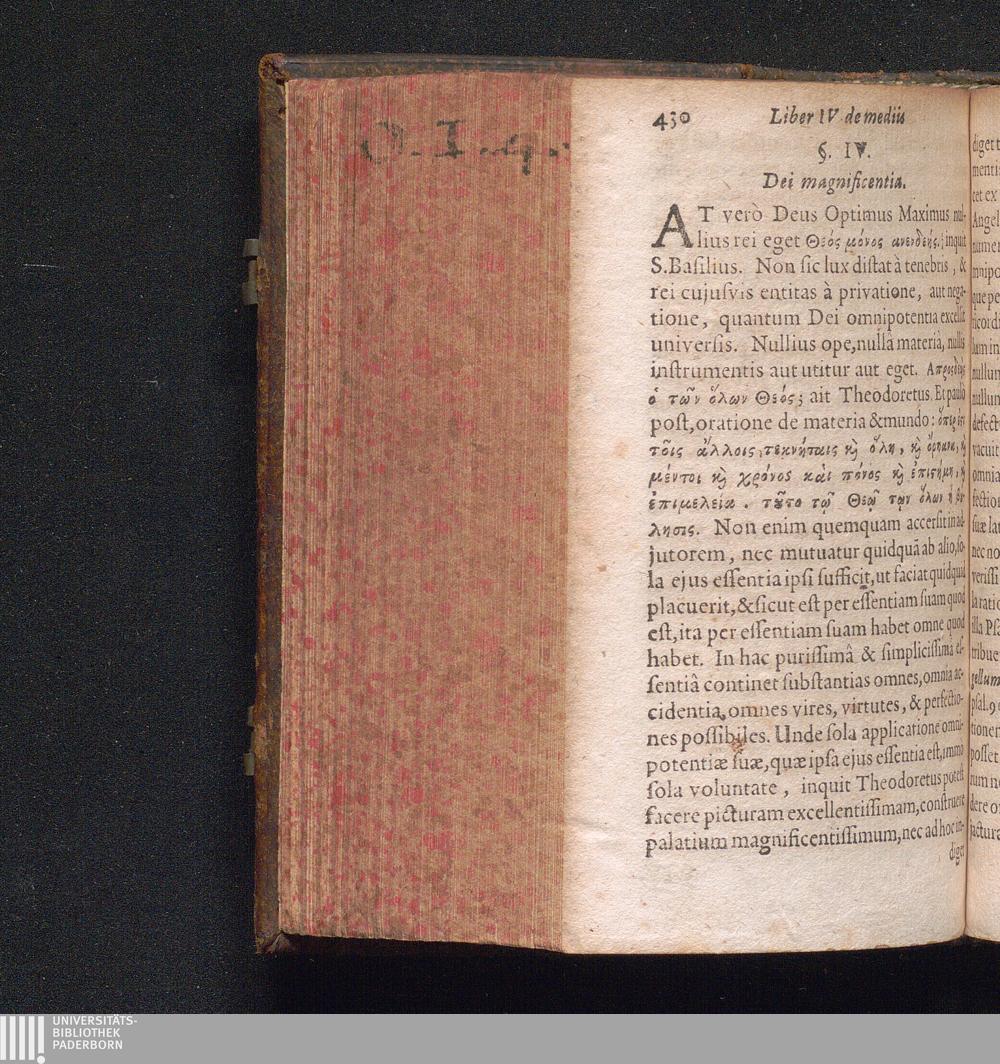 O. I. 9.
430 Liber IV de mediis
§. IV.
Dei magnificentia.
AT verò Deus Optimus Maximus nul-
lius rei eget Θεός μόνος ανενδεής.; inquit
S. Basilius. Non sic lux distat à tenebris, &
rei cujusvis entitas à privatione, aut nega-
tione, quantum Dei omnipotentia excellit
universis. Nullius ope, nullâ materiâ, nullis
instrumentis aut utitur aut eget. Απροςδεὴς
ὁ τῶν ὅλων Θεός; ait Theodoretus. Et paulò
post, oratione de materia & mundo: ὅπερ
τοῖς ἄλλοις τεκνήταις κὴ ὕλη, κὴ ὄργανα, κὴ
μέντοι κὴ χρόνος καὶ πόνος κὴ ἐπιστήμη, κὴ
ἐπιμελεία. τοῦτο τῷ Θεῷ τῶν ὅλων ἡ βύ-
λησις. Non enim quemquam accersit in ad-
jutorem, nec mutuatur quidquã ab alio, so-
la ejus essentia ipsi sufficit, ut faciat quidquid
placuerit, & sicut est per essentiam suam quod
est, ita per essentiam suam habet omne quod
habet. In hac purissimâ & simplicissimâ es-
sentiâ continet substantias omnes, omnia ac-
cidentia, omnes vires, virtutes, & perfectio-
nes possibiles. Unde sola applicatione omni-
potentiæ suæ, quæ ipsa ejus essentia est, immo
sola voluntate, inquit Theodoretus potest
facere picturam excellentissimam, construere
palatium magnificentissimum, nec ad hoc in-
diget
diget
menti
tet ex
Angel
numer
mnipo
que pe
ricordi
lum in
nullum
nullum
defect
vacuit
omnia
fectio
suæ la
nec no
verissi
la ratio
illa Psa
tribue
gellum
psal. 90
tionem
posset
rum n
dere o
factura
UNIVERSITÄTS-
BIBLIOTHEK
PADERBORN